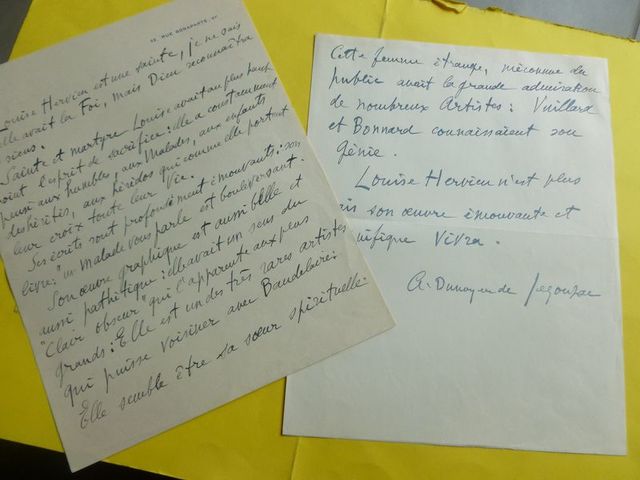 RUE BONAPARTE, VI
Louise Hervieu est une sainte, je ne sais
elle avait la Foi, mais Dieu reconnaîtra
siens.
Sainte et martyre Louise avait au plus haut
point l'esprit de sacrifice : elle a constamment
pensé aux humbles, aux Malades, aux enfants
deshérités, aux hérédos qui comme elle portent
leur croix toute leur Vie.
Ses écrits sont profondément émouvants : son
livre : "un Malade vous parle" est bouleversant.
Son œuvre graphique est aussi belle et
aussi pathétique : elle avait un sens du
"Clair obscur" qui l'apparente aux plus
grands : Elle est un des très rares artistes
qui puisse voisiner avec Baudelaire.
Elle semble être sa sœur spirituelle.
Cette femme étrange, méconnue du
public avait la grande admiration
de nombreux Artistes : Vuillard
et Bonnard connaissaient son
génie.
Louise Hervieu n'est plus
mais son œuvre émouvante et
magnifique Vivra.
A. Dunoyer de Segonzac